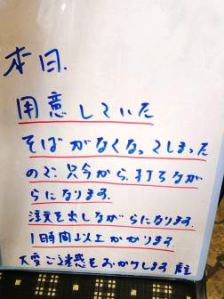 本日、
用意していた
そばがなくなってしまった
ので、只今から打ちなが
らになります。
注文を出しながらになります。
1時間以上かかります
大変ご迷惑をおかけします 店主